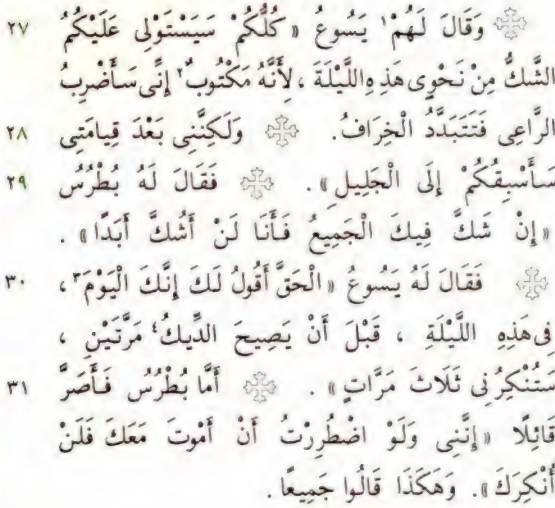 ٢٧ وَقَالَ لَهُمْ١ يَسُوعُ « كُلُّكُمْ سَيَسْتَوْلِى عَلَيْكُمُ
الشَّكُّ مِنْ نَحْوِى هَذِهِ اللَّيْلَةَ ، لِأَنَّهُ مَكْتُوبٌ٢ إِنِّى سَأَضْرِبُ
٢٨ الرَّاعِى فَتَتَبَدَّدُ الْخِرَافُ. وَلَكِنَّنِى بَعْدَ قِيَامَتِى
٢٩ سَأَسْبِقُكُمْ إِلَى الْجَلِيلِ » . فَقَالَ لَهُ بُطْرُسُ
« إِنْ شَكَّ فِيكَ الْجَمِيعُ فَأَنَا لَنْ أَشُكَّ أَبَدًا » .
٣٠ فَقَالَ لَهُ يَسُوعُ « الْحَقَّ أَقُولُ لَكَ إِنَّكَ الْيَوْمَ٣ ،
فِى هَذِهِ اللَّيْلَةِ ، قَبْلَ أَنْ يَصِيحَ الدِّيكُ٤ مَرَّتَيْنِ ،
٣١ سَتُنْكِرُنِى ثَلَاثَ مَرَّاتٍ » . أَمَّا بُطْرُسُ فَأَصَرَّ
قَائِلًا « إِنَّنِى وَلَوْ اضْطُرِرْتُ أَنْ أَمُوتَ مَعَكَ فَلَنْ
أُنْكِرَكَ ». وَهَكَذَا قَالُوا جَمِيعًا .